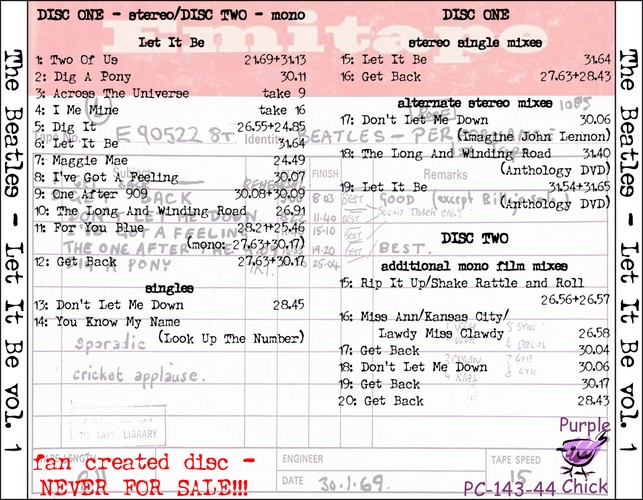 The Beatles - Let It Be vol. 1
DISC ONE - stereo/DISC TWO - mono
Let It Be
1: Two Of Us 21.69+31.13
2: Dig A Pony 30.11
3: Across The Universe take 9
4: I Me Mine take 16
5: Dig It 26.55+24.85
6: Let It Be 31.64
7: Maggie Mae 24.49
8: I've Got A Feeling 30.07
9: One After 909 30.08+30.09
10: The Long And Winding Road 26.91
11: For You Blue 28.21+25.46
(mono: 27.63+30.17)
12: Get Back 27.63+30.17
singles
13: Don't Let Me Down 28.45
14: You Know My Name
(Look Up The Number)
DISC ONE
stereo single mixes
15: Let It Be 31.64
16: Get Back 27.63+28.43
alternate stereo mixes
17: Don't Let Me Down 30.06
(Imagine John Lennon)
18: The Long And Winding Road 31.40
(Anthology DVD)
19: Let It Be 31.54+31.65
(Anthology DVD)
DISC TWO
additional mono film mixes
15: Rip It Up/Shake Rattle and Roll
26.56+26.57
16: Miss Ann/Kansas City/
Lawdy Miss Clawdy 26.58
17: Get Back 30.04
18: Don't Let Me Down 30.06
19: Get Back 30.17
20: Get Back 28.43
Emitape
E90522 ST Identity BEATLES -
FINISH
Remarks
BACK 8-03 BEST GOOD (except
DOWN 11-40
I'VE GOT A FEELING 15-10
THE ONE AFTER THE 19-20 BEST.
DIG A PONY 25-04
sporadic
cricket applause.
TO TAPE LIBRARY
ENGINEER
DATE 30.1.69.
TAPE SPEED
15
fan created disc -
NEVER FOR SALE!!!
Purple
Chick
PC-143-44
The Beatles - Let It Be vol. 1